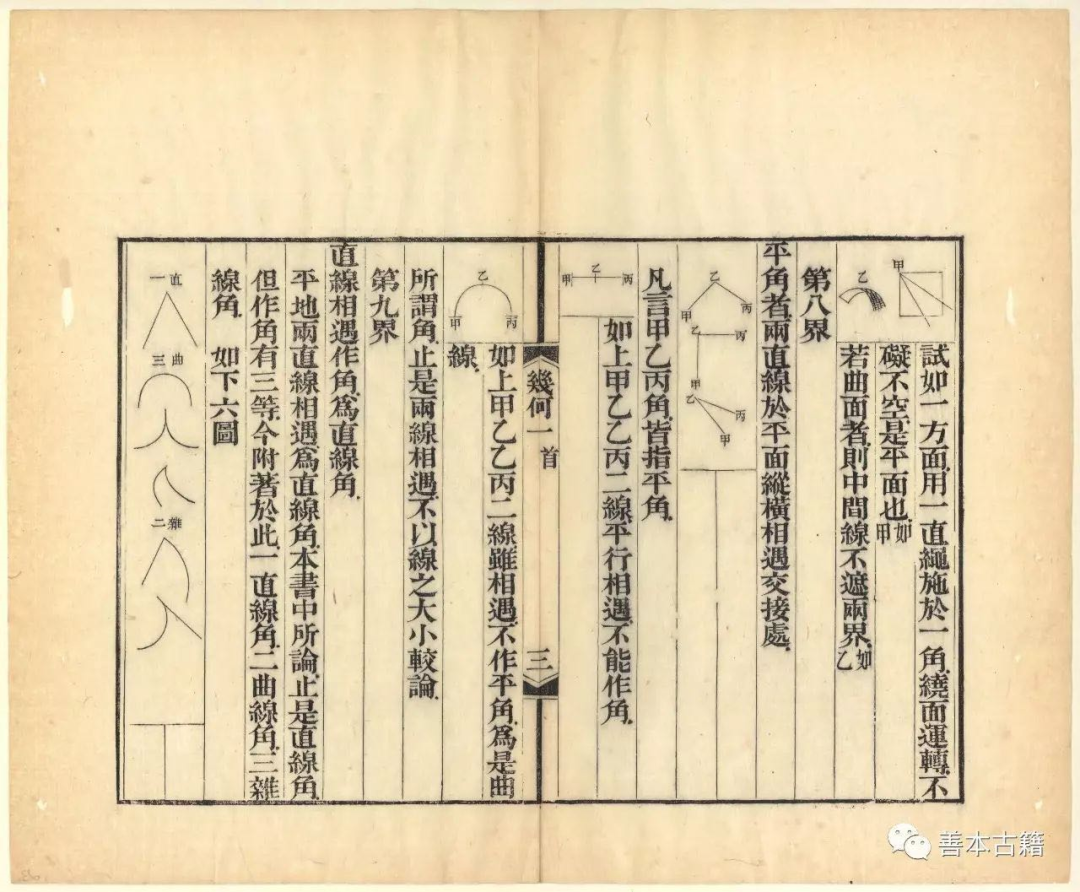 甲
乙
試如一方面.用一直繩施於一角.繞面運轉.不
礙不空.是平面也.如甲
若曲面者.則中間線不遮兩界.如乙
第八界
平角者.兩直線於平面縱橫相遇交接處.
乙
甲 丙
乙 丙
甲
乙 丙
甲
凡言甲乙丙角.皆指平角.
甲 乙 丙
如上甲乙乙丙二線平行相遇.不能作角.
幾何一 首
三
乙
甲 丙
如上甲乙乙丙二線雖相遇.不作平角.爲是曲
線.
所謂角.止是兩線相遇.不以線之大小較論.
第九界
直線相遇作角.爲直線角.
平地兩直線相遇.爲直線角.本書中所論.止是直線角.
但作角有三等.今附著於此.一直線角.二曲線角.三雜
線角. 如下六圖
直一
曲三
雜二
善本古籍